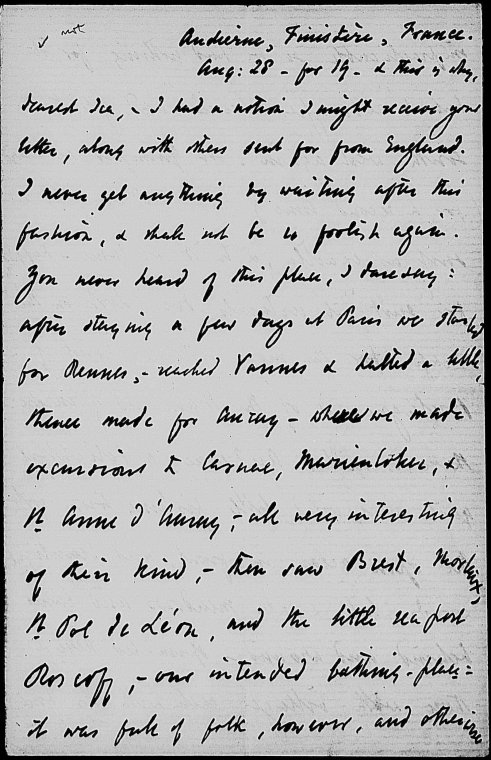 not
Audierne, Finistère, France.
Aug: 28 - for 19 - & this is why,
dearest Isa, - I had a notion I might receive your
letter, along with others sent for from England.
I never get anything by waiting after this
fashion, & shall not be so foolish again.
You never heard of this place, I dare say:
after staying a few days at Paris we started
for Rennes, - reached Vannes & halted a little,
thence made for Auray - where we made
excursions to Carnac, Mariaker, &
St Anne d'Auray, - all very interesting
of their kind, - then saw Brest, Morlaix,
St Pol de Léon, and the little sea port
Roscoff, - our intended bathing-place =
it was full of folk, however, and otherwise